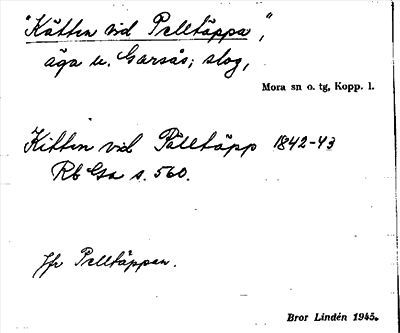 "Kättin vid Pelltäppa",
äga u. Garsås; slog,
Mora sn o. tg, Kopp. l.
Kittin vid Pälltäpp 1842-43
Rb Gsa s. 560.
Jfr Pelltäppan.
Bror Lindén 1945.